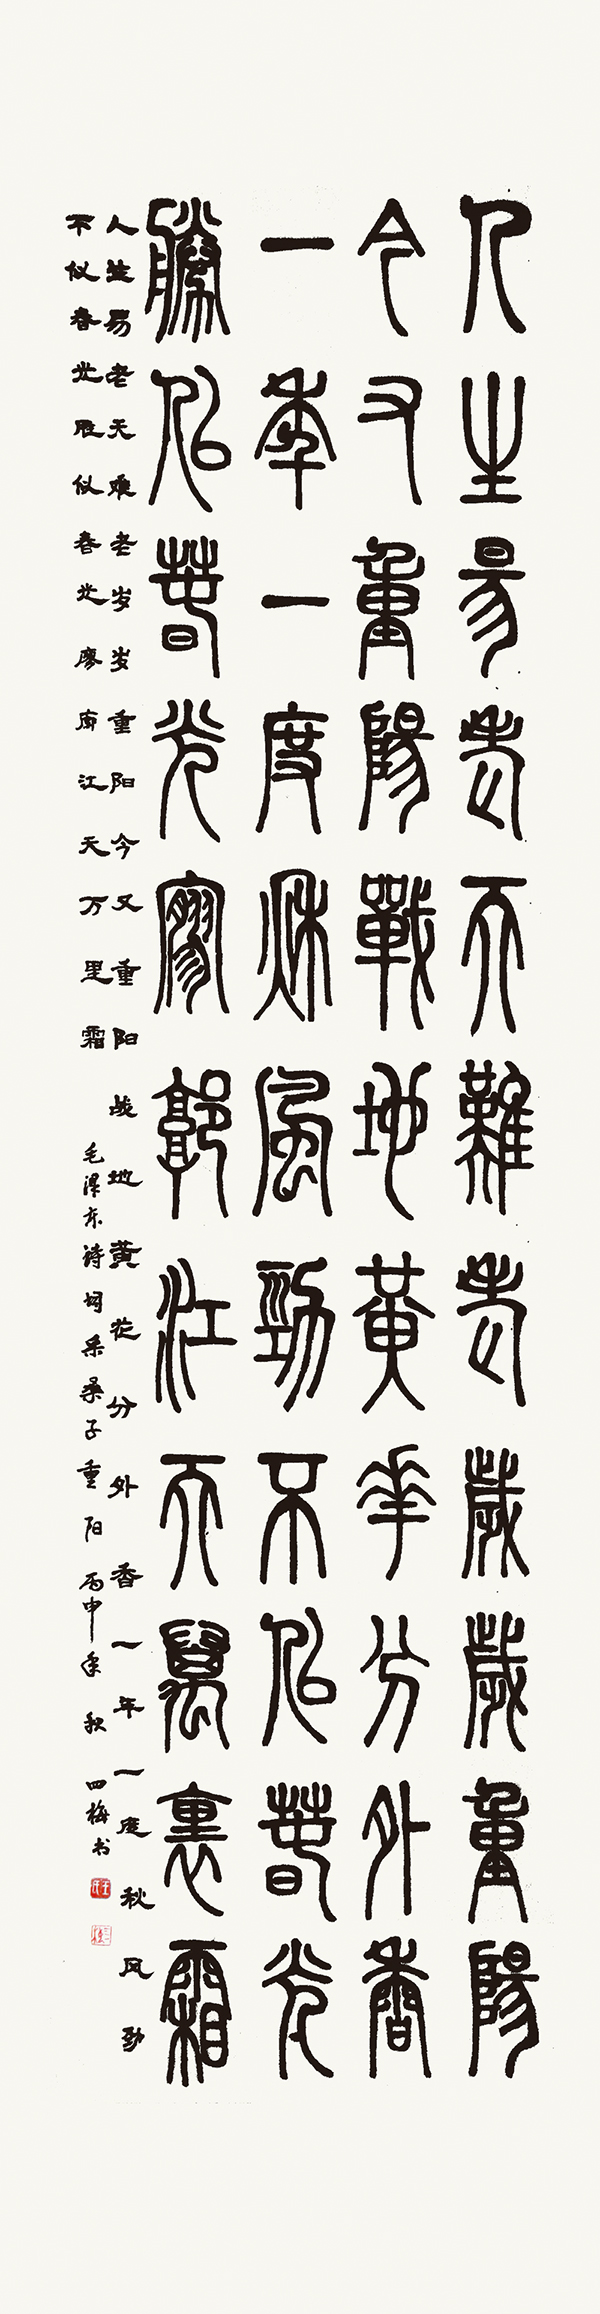 人生易老天難老歲歲重陽
今又重陽戰地黃華分外香
一年一度秋風勁不似春光
勝似春光寥郭江天萬裏霜
人生易老天难老岁岁重阳今又重阳战地黄花分外香一年一度秋风劲
不似春光胜似春光廖廓江天万里霜 毛泽东诗词采桑子重阳 丙申年秋 四梅书